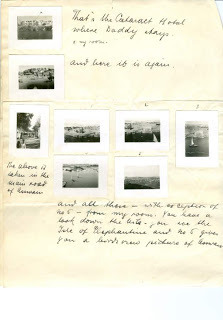 That's the Cataract Hotel
where Daddy stays.
x my room.
and here it is again.
The above is
taken in the
main road
of Assuan
and all these – with exception of
No 5 – from my room. You have a
look down the Nile – you see the
Isle of Elephantine and No 5 gives
you a birdsview picture of Assuan